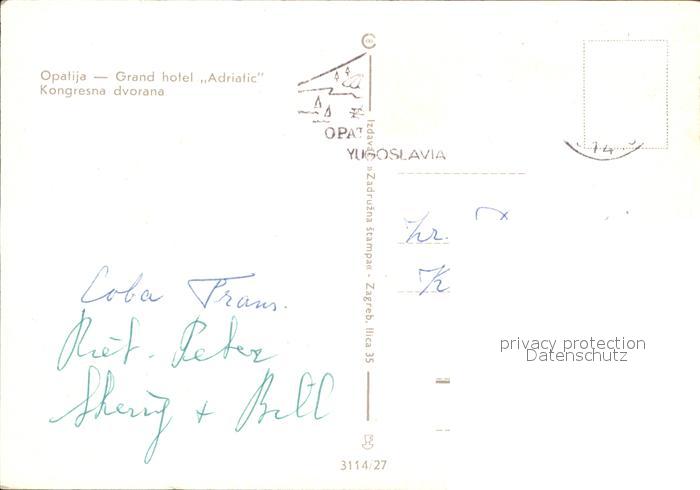 Opatija — Grand hotel „Adriatic"
Kongresna dvorana
OPAT
YUGOSLAVIA
Izdavač »Zadružna štampa« - Zagreb, Ilica 35
14
hr.
K
Coba Frans.
Riet. Peter
Sherry + Bill
privacy protection
Datenschutz
3114/27